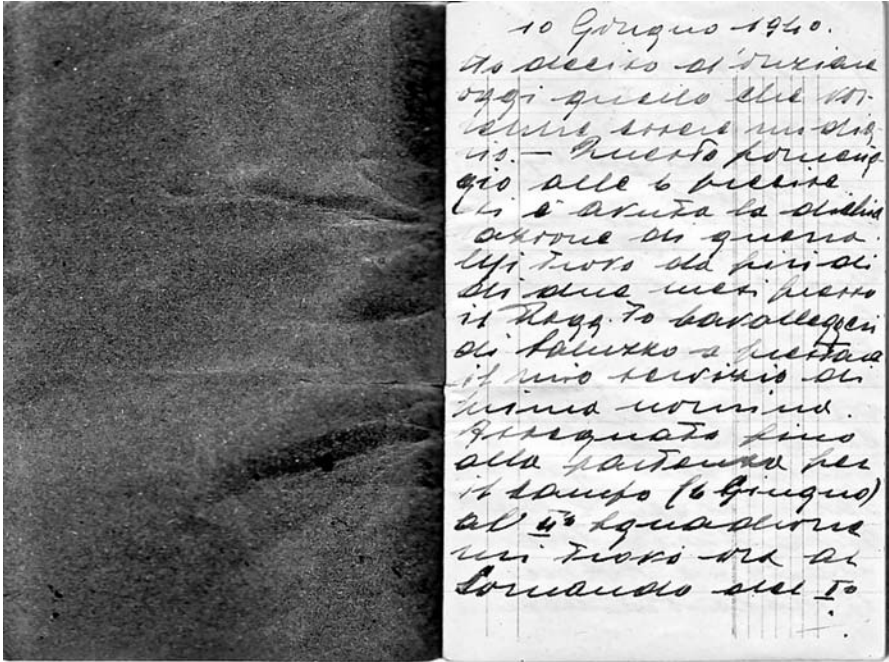 10 Giugno 1940.
Ho deciso d'iniziare
oggi quello che vor-
rebbe essere un dia-
rio. — Questo pomerig
gio alle 6 precise
si è avuta la dichia
azione di guerra.
Mi trovo da più di
di due mesi presso
il Regg.to Cavalleggeri
di Saluzzo a prestare
il mio servizio di
prima nomina.
Assegnato fino
alla partenza per
il campo (6 Giugno)
al IIº Squadrone
mi trovo ora al
Comando del Iº